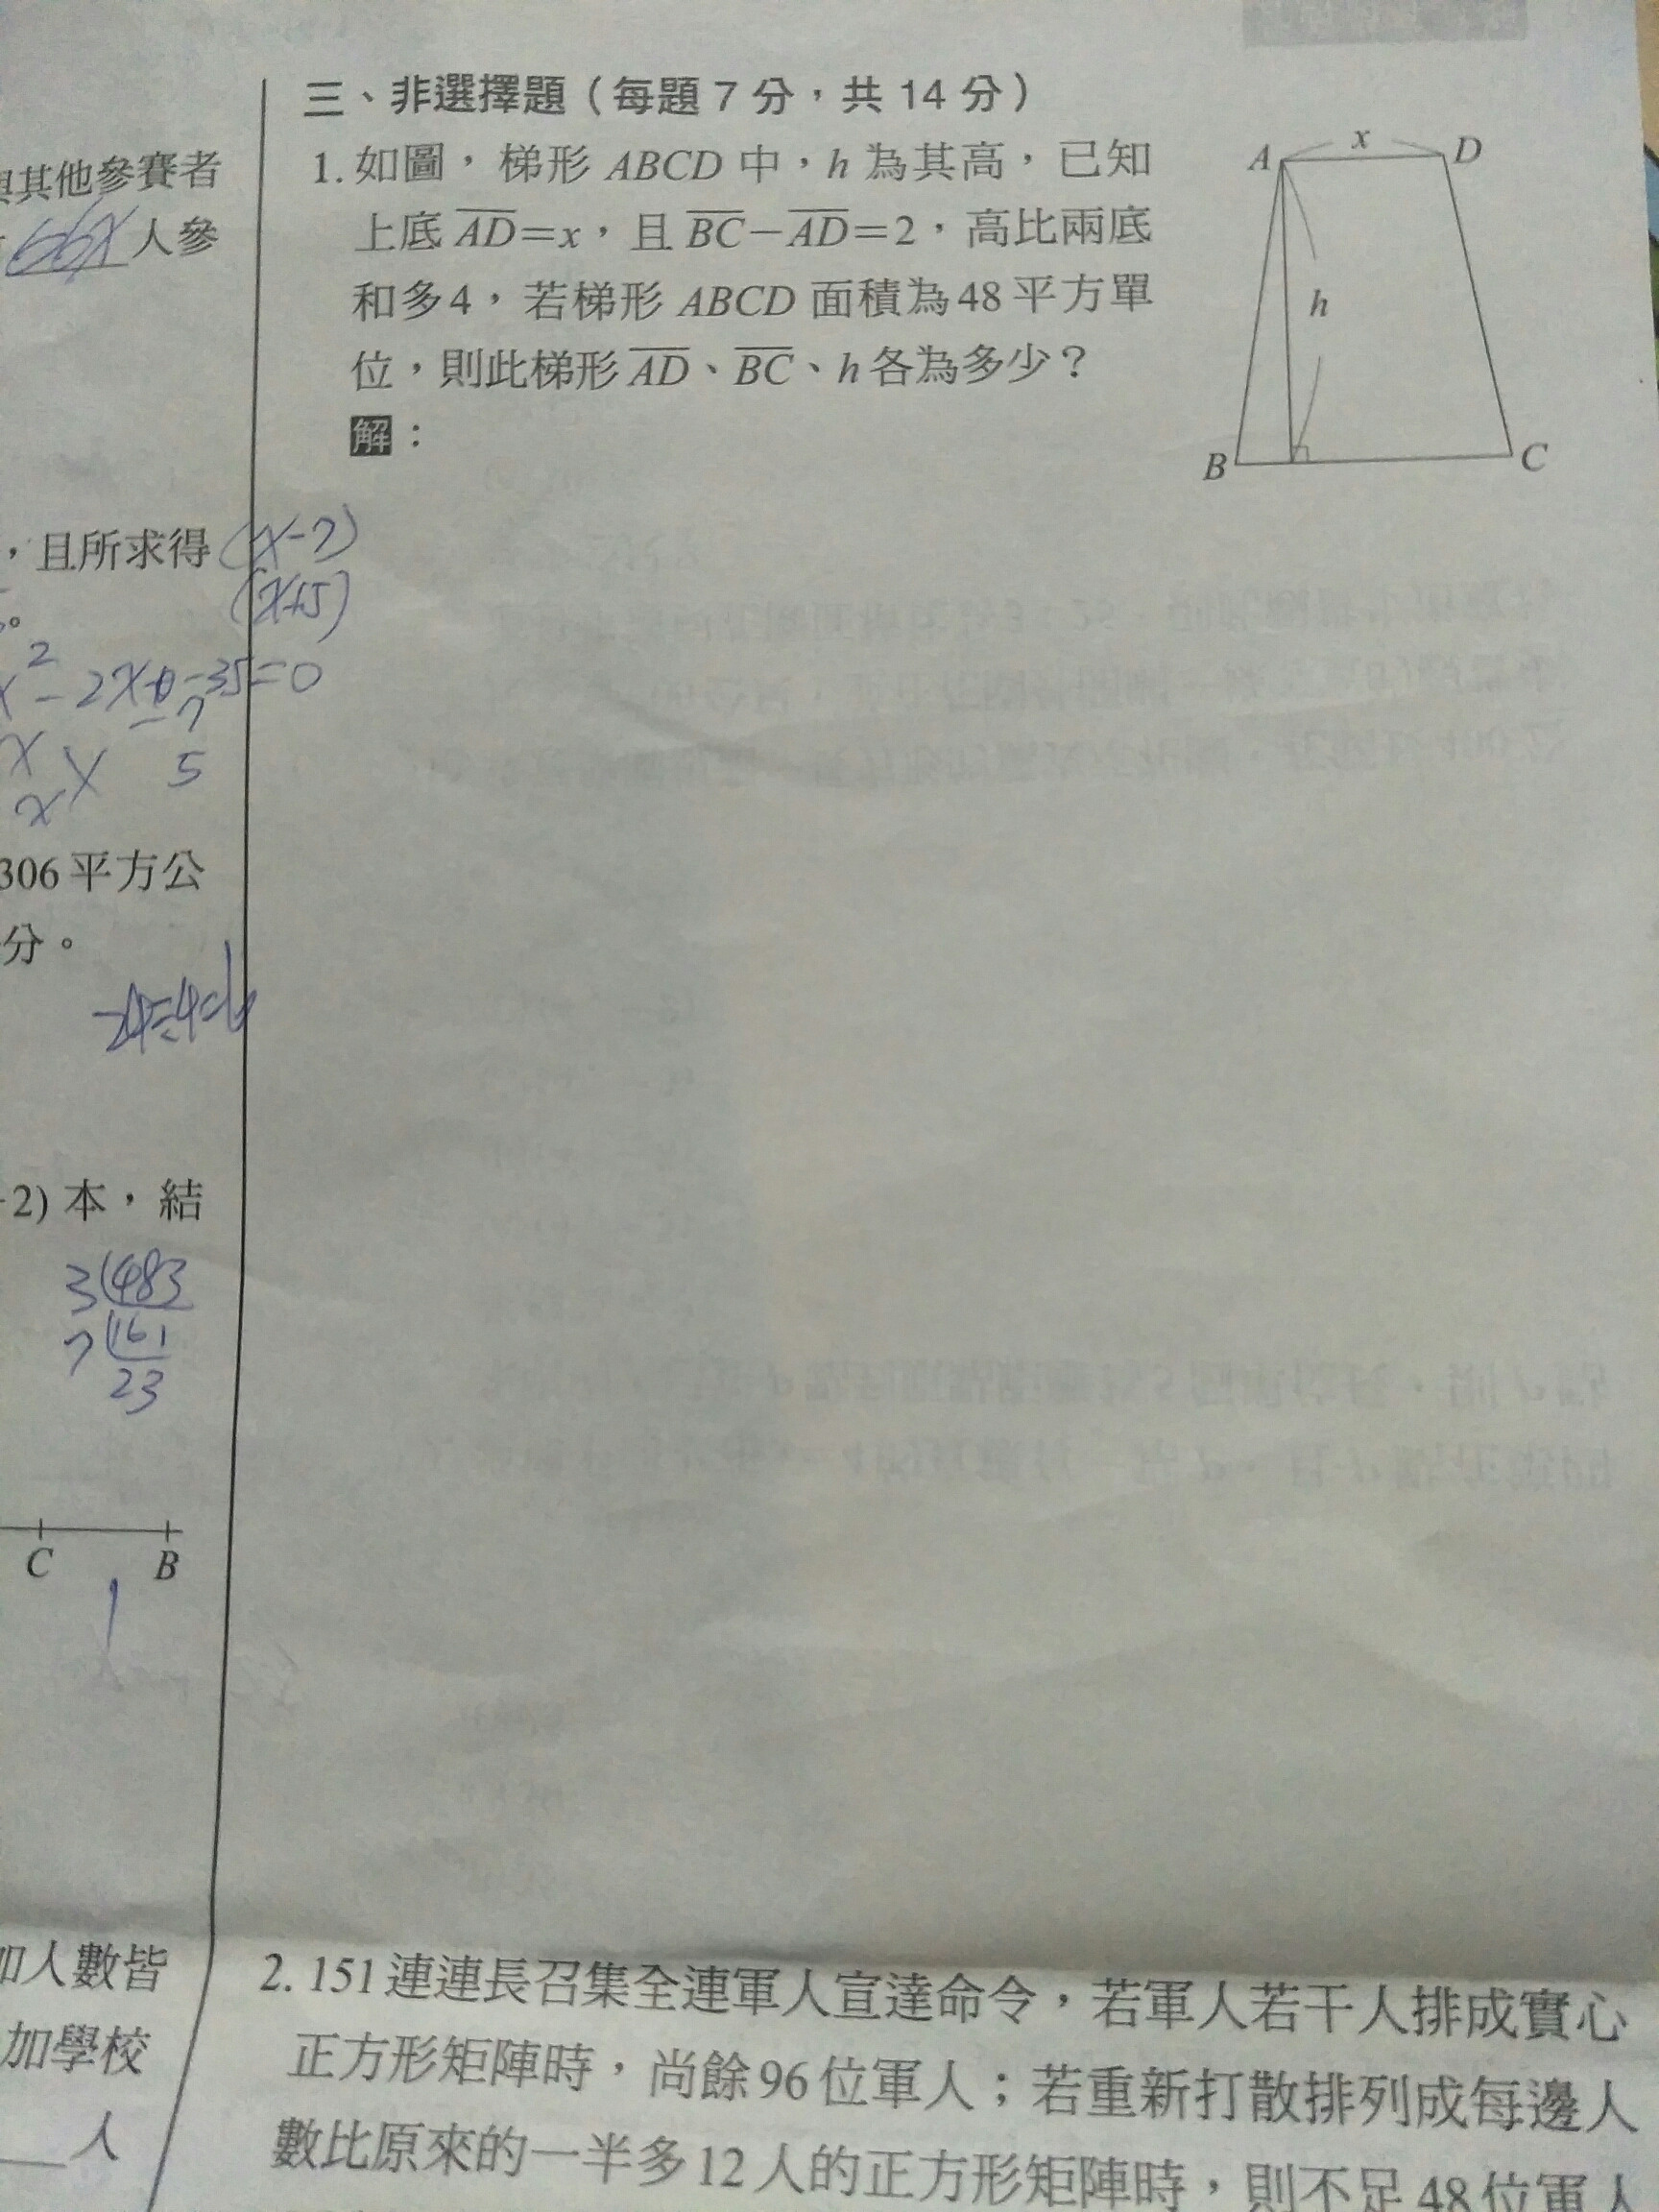 與其他參賽者
人參
，且所求得
(x-7)
(x+5)
x²-2x-35=0
-7
x
5
x
306平方公
分。
-2) 本，結
3 483
7 161
23
C B
加人數皆
加學校
人
三、非選擇題（每題 7 分，共 14 分）
1. 如圖，梯形 ABCD 中，h 為其高，已知
上底 AD=x，且 BC-AD=2，高比兩底
和多4，若梯形 ABCD 面積為48平方單
位，則此梯形 AD、BC、h 各為多少？
解：
A x D
h
B C
2. 151連連長召集全連軍人宣達命令，若軍人若干人排成實心
正方形矩陣時，尚餘96位軍人；若重新打散排列成每邊人
數比原來的一半多12人的正方形矩陣時，則不足48位軍人